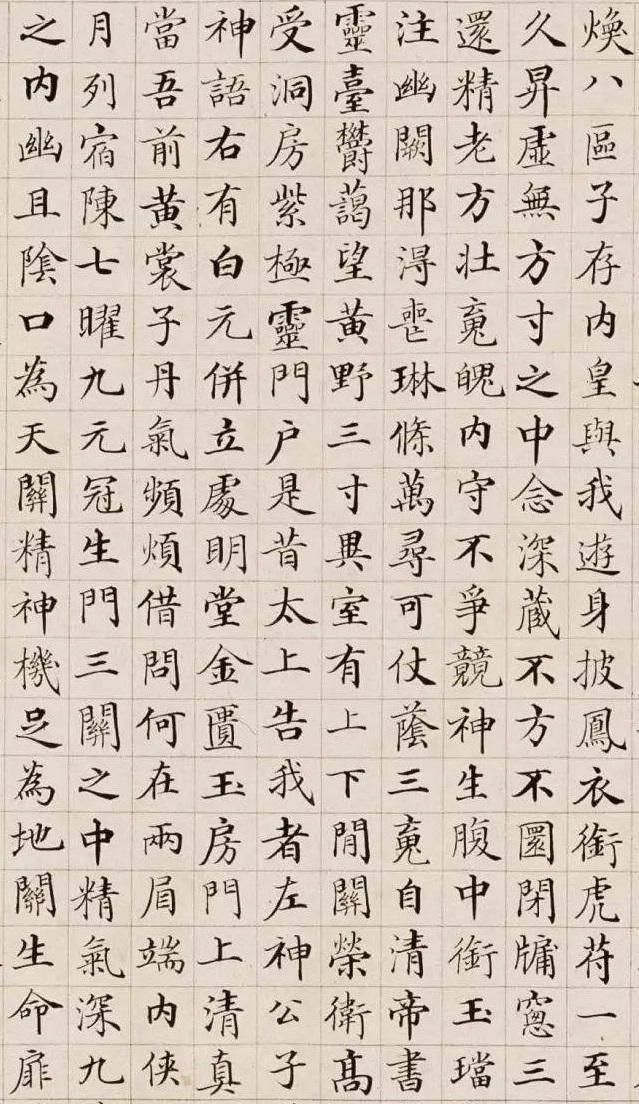 煥八區子存內皇與我遊身披鳳衣銜虎苻一至
久昇虛無方寸之中念深藏不方不圓閉牖窻三
還精老方壯䰟魄內守不爭競神生腹中銜玉璫
注幽闕那淂喪琳條萬尋可仗蔭三䰟自清帝書
靈臺欝藹望黃野三寸異室有上下閒關榮衛髙
受洞房紫極靈門户是昔太上告我者左神公子
神語右有白元併立處明堂金匱玉房門上清真
當吾前黃裳子丹氣頻煩借問何在兩眉端內俠
月列宿陳七曜九元冠生門三關之中精氣深九
之內幽且陰口為天關精神機足為地關生命扉